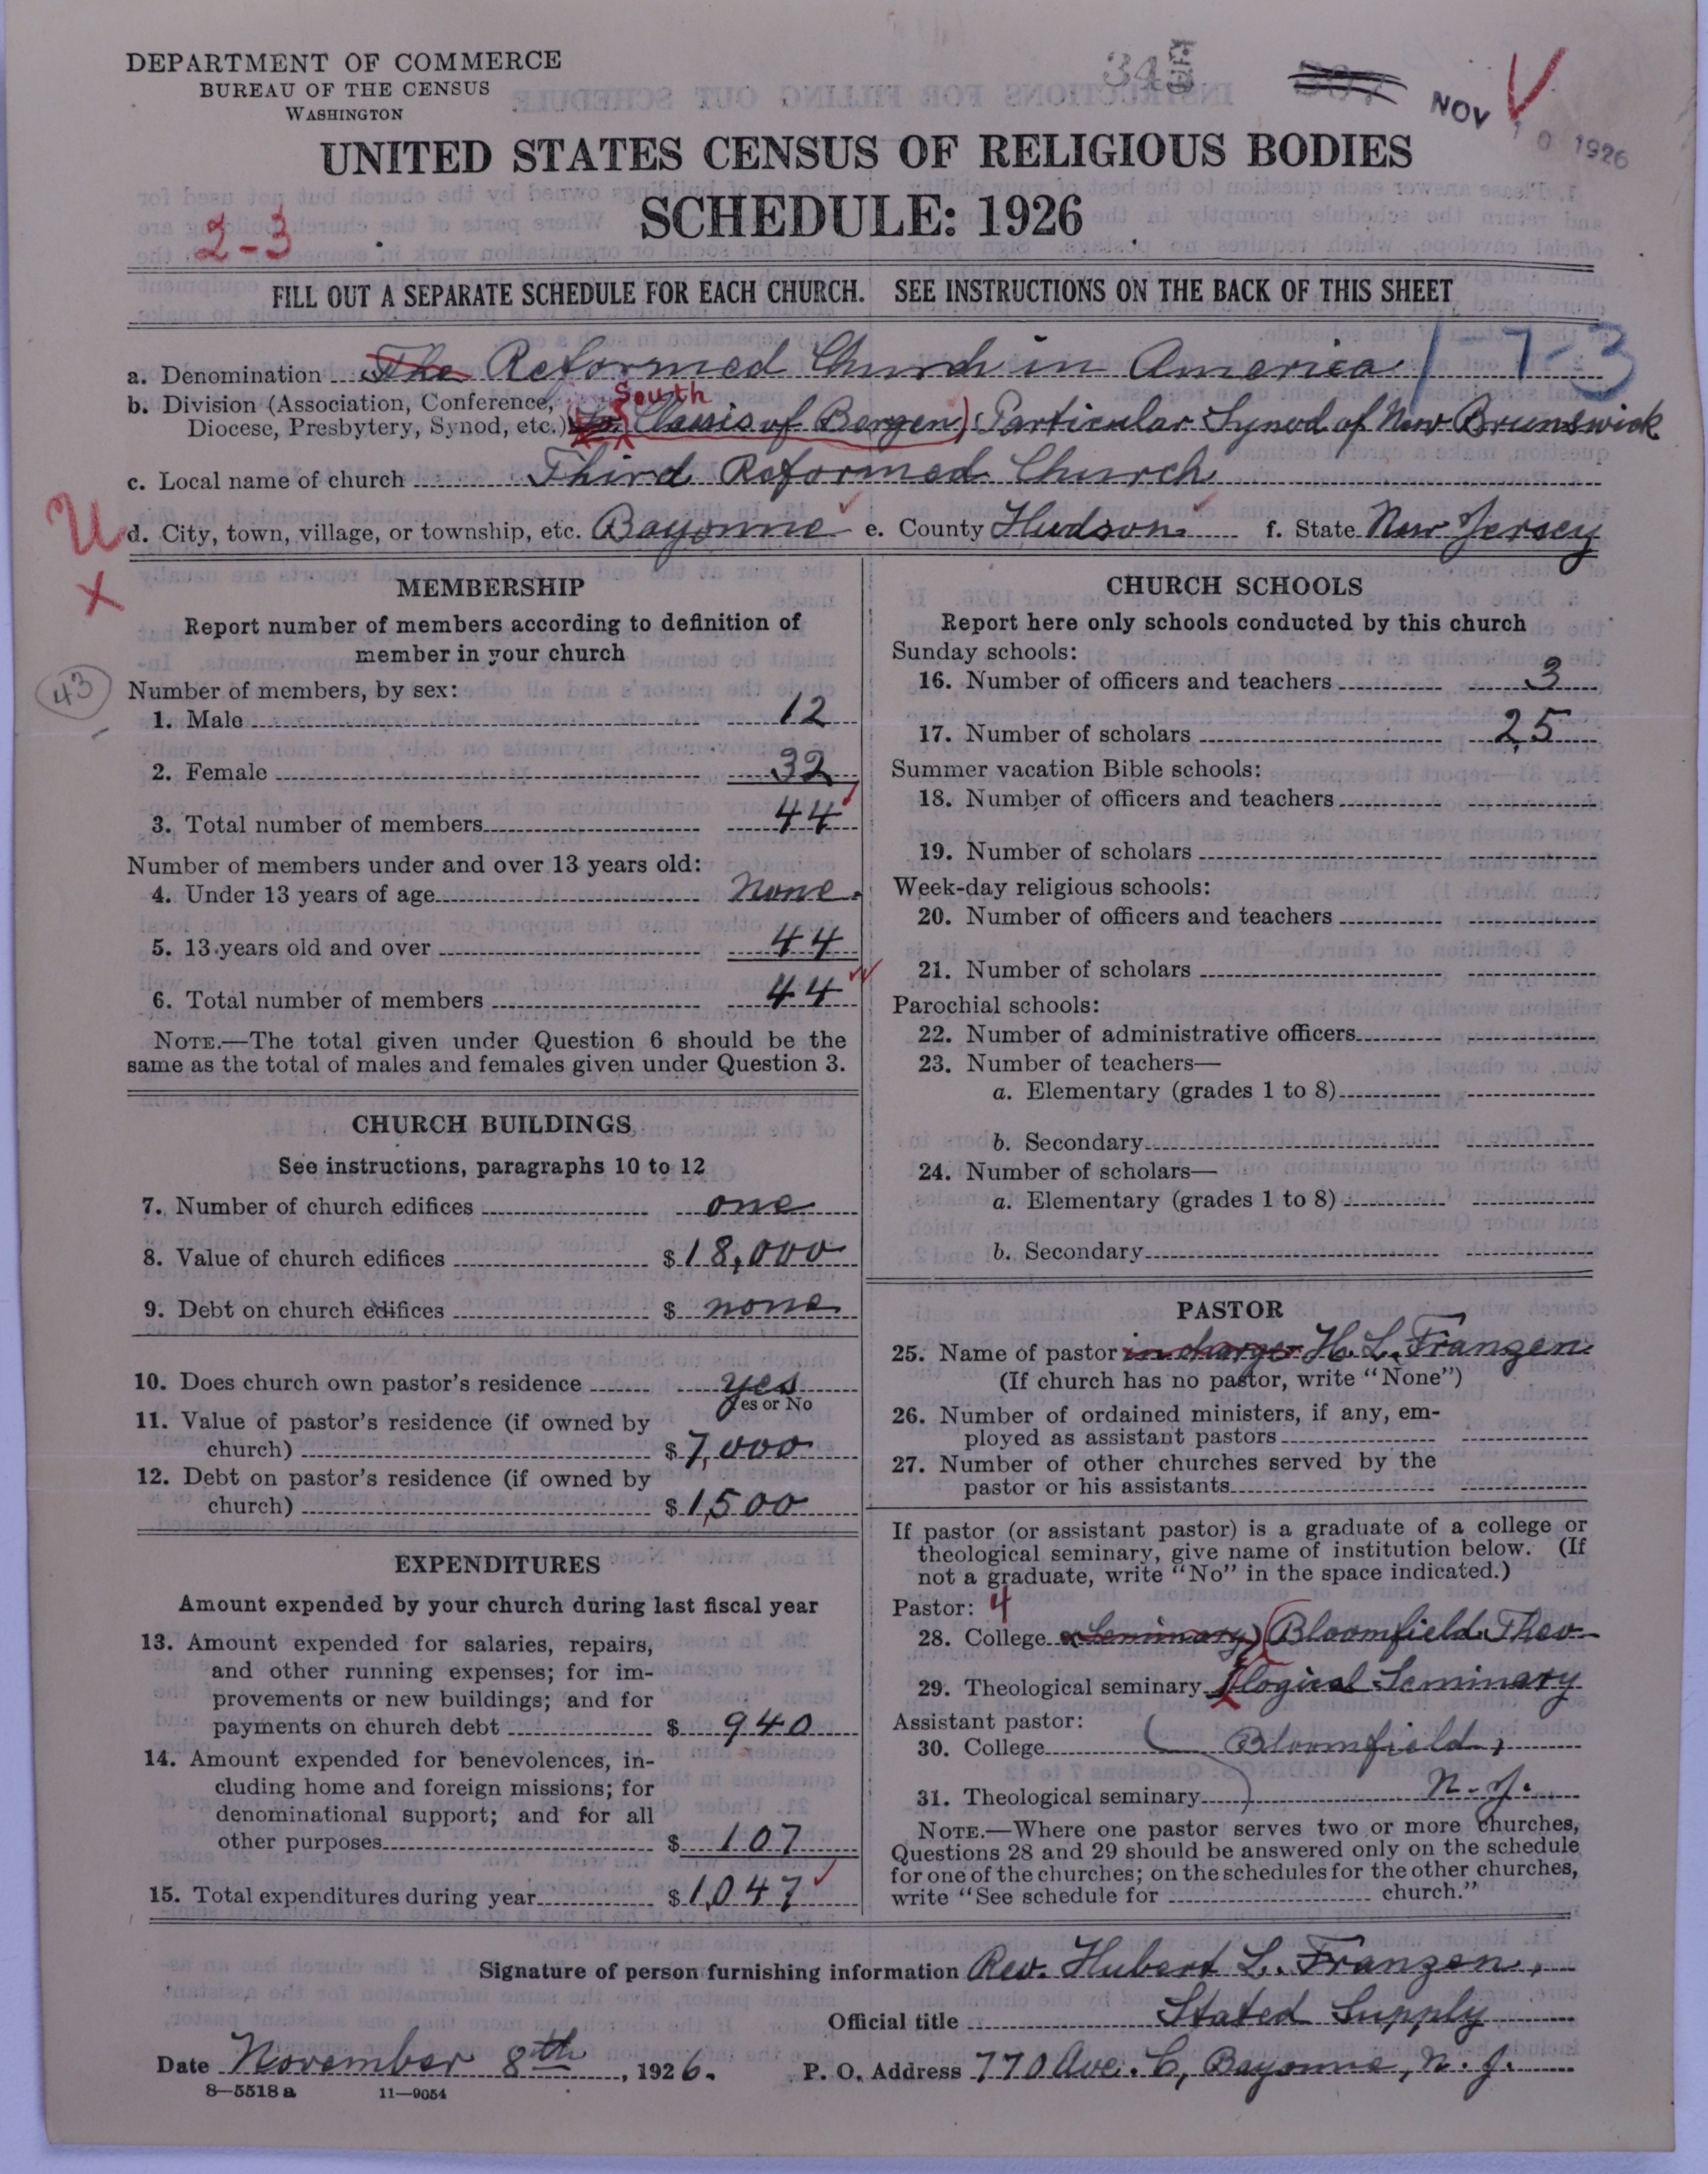 DEPARTMENT OF COMMERCE
BUREAU OF THE CENSUS
WASHINGTON
345
NOV 10 1926
UNITED STATES CENSUS OF RELIGIOUS BODIES
SCHEDULE: 1926
2-3
FILL OUT A SEPARATE SCHEDULE FOR EACH CHURCH. SEE INSTRUCTIONS ON THE BACK OF THIS SHEET
1-7-3
a. Denomination The Reformed Church in America
South
b. Division (Association, Conference,
Diocese, Presbytery, Synod, etc.) Classis of Bergen) Particular Synod of New Brunswick
c. Local name of church Third Reformed Church
U
d. City, town, village, or township, etc. Bayonne e. County Hudson f. State New Jersey
X
MEMBERSHIP
Report number of members according to definition of
member in your church
43
Number of members, by sex:
1. Male 12
2. Female 32
3. Total number of members 44
Number of members under and over 13 years old:
4. Under 13 years of age none.
5. 13 years old and over 44
6. Total number of members 44
NOTE.—The total given under Question 6 should be the
same as the total of males and females given under Question 3.
CHURCH BUILDINGS
See instructions, paragraphs 10 to 12
7. Number of church edifices one
8. Value of church edifices $18,000
9. Debt on church edifices $ none
10. Does church own pastor's residence yes
Yes or No
11. Value of pastor's residence (if owned by
church) $7,000
12. Debt on pastor's residence (if owned by
church) $1,500
EXPENDITURES
Amount expended by your church during last fiscal year
13. Amount expended for salaries, repairs,
and other running expenses; for im-
provements or new buildings; and for
payments on church debt $ 940
14. Amount expended for benevolences, in-
cluding home and foreign missions; for
denominational support; and for all
other purposes $ 107
15. Total expenditures during year $1,047
CHURCH SCHOOLS
Report here only schools conducted by this church
Sunday schools:
16. Number of officers and teachers 3
17. Number of scholars 25
Summer vacation Bible schools:
18. Number of officers and teachers
19. Number of scholars
Week-day religious schools:
20. Number of officers and teachers
21. Number of scholars
Parochial schools:
22. Number of administrative officers
23. Number of teachers—
a. Elementary (grades 1 to 8)
b. Secondary
24. Number of scholars—
a. Elementary (grades 1 to 8)
b. Secondary
PASTOR
25. Name of pastor in charge H. L. Franzen
(If church has no pastor, write "None")
26. Number of ordained ministers, if any, em-
ployed as assistant pastors
27. Number of other churches served by the
pastor or his assistants
If pastor (or assistant pastor) is a graduate of a college or
theological seminary, give name of institution below. (If
not a graduate, write "No" in the space indicated.)
Pastor: 4
28. College or Seminary) (Bloomfield Theo-
29. Theological seminary logical Seminary
Assistant pastor:
30. College ( Bloomfield,
31. Theological seminary ) N. J.
NOTE.—Where one pastor serves two or more churches,
Questions 28 and 29 should be answered only on the schedule
for one of the churches; on the schedules for the other churches,
write "See schedule for church."
Signature of person furnishing information Rev. Hubert L. Franzen,
Official title Stated Supply
Date November 8th, 1926. P. O. Address 770 Ave. C, Bayonne, N. J.
8—5518 a 11—9054